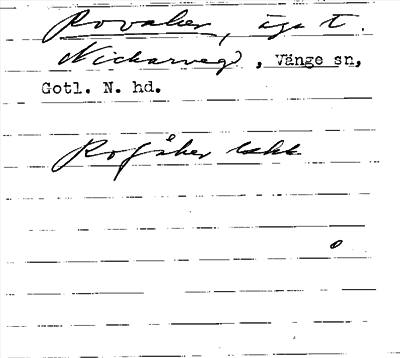 Rovaker, äga t.
Nickarveg, Vänge sn,
Gotl. N. hd.
Rofåker